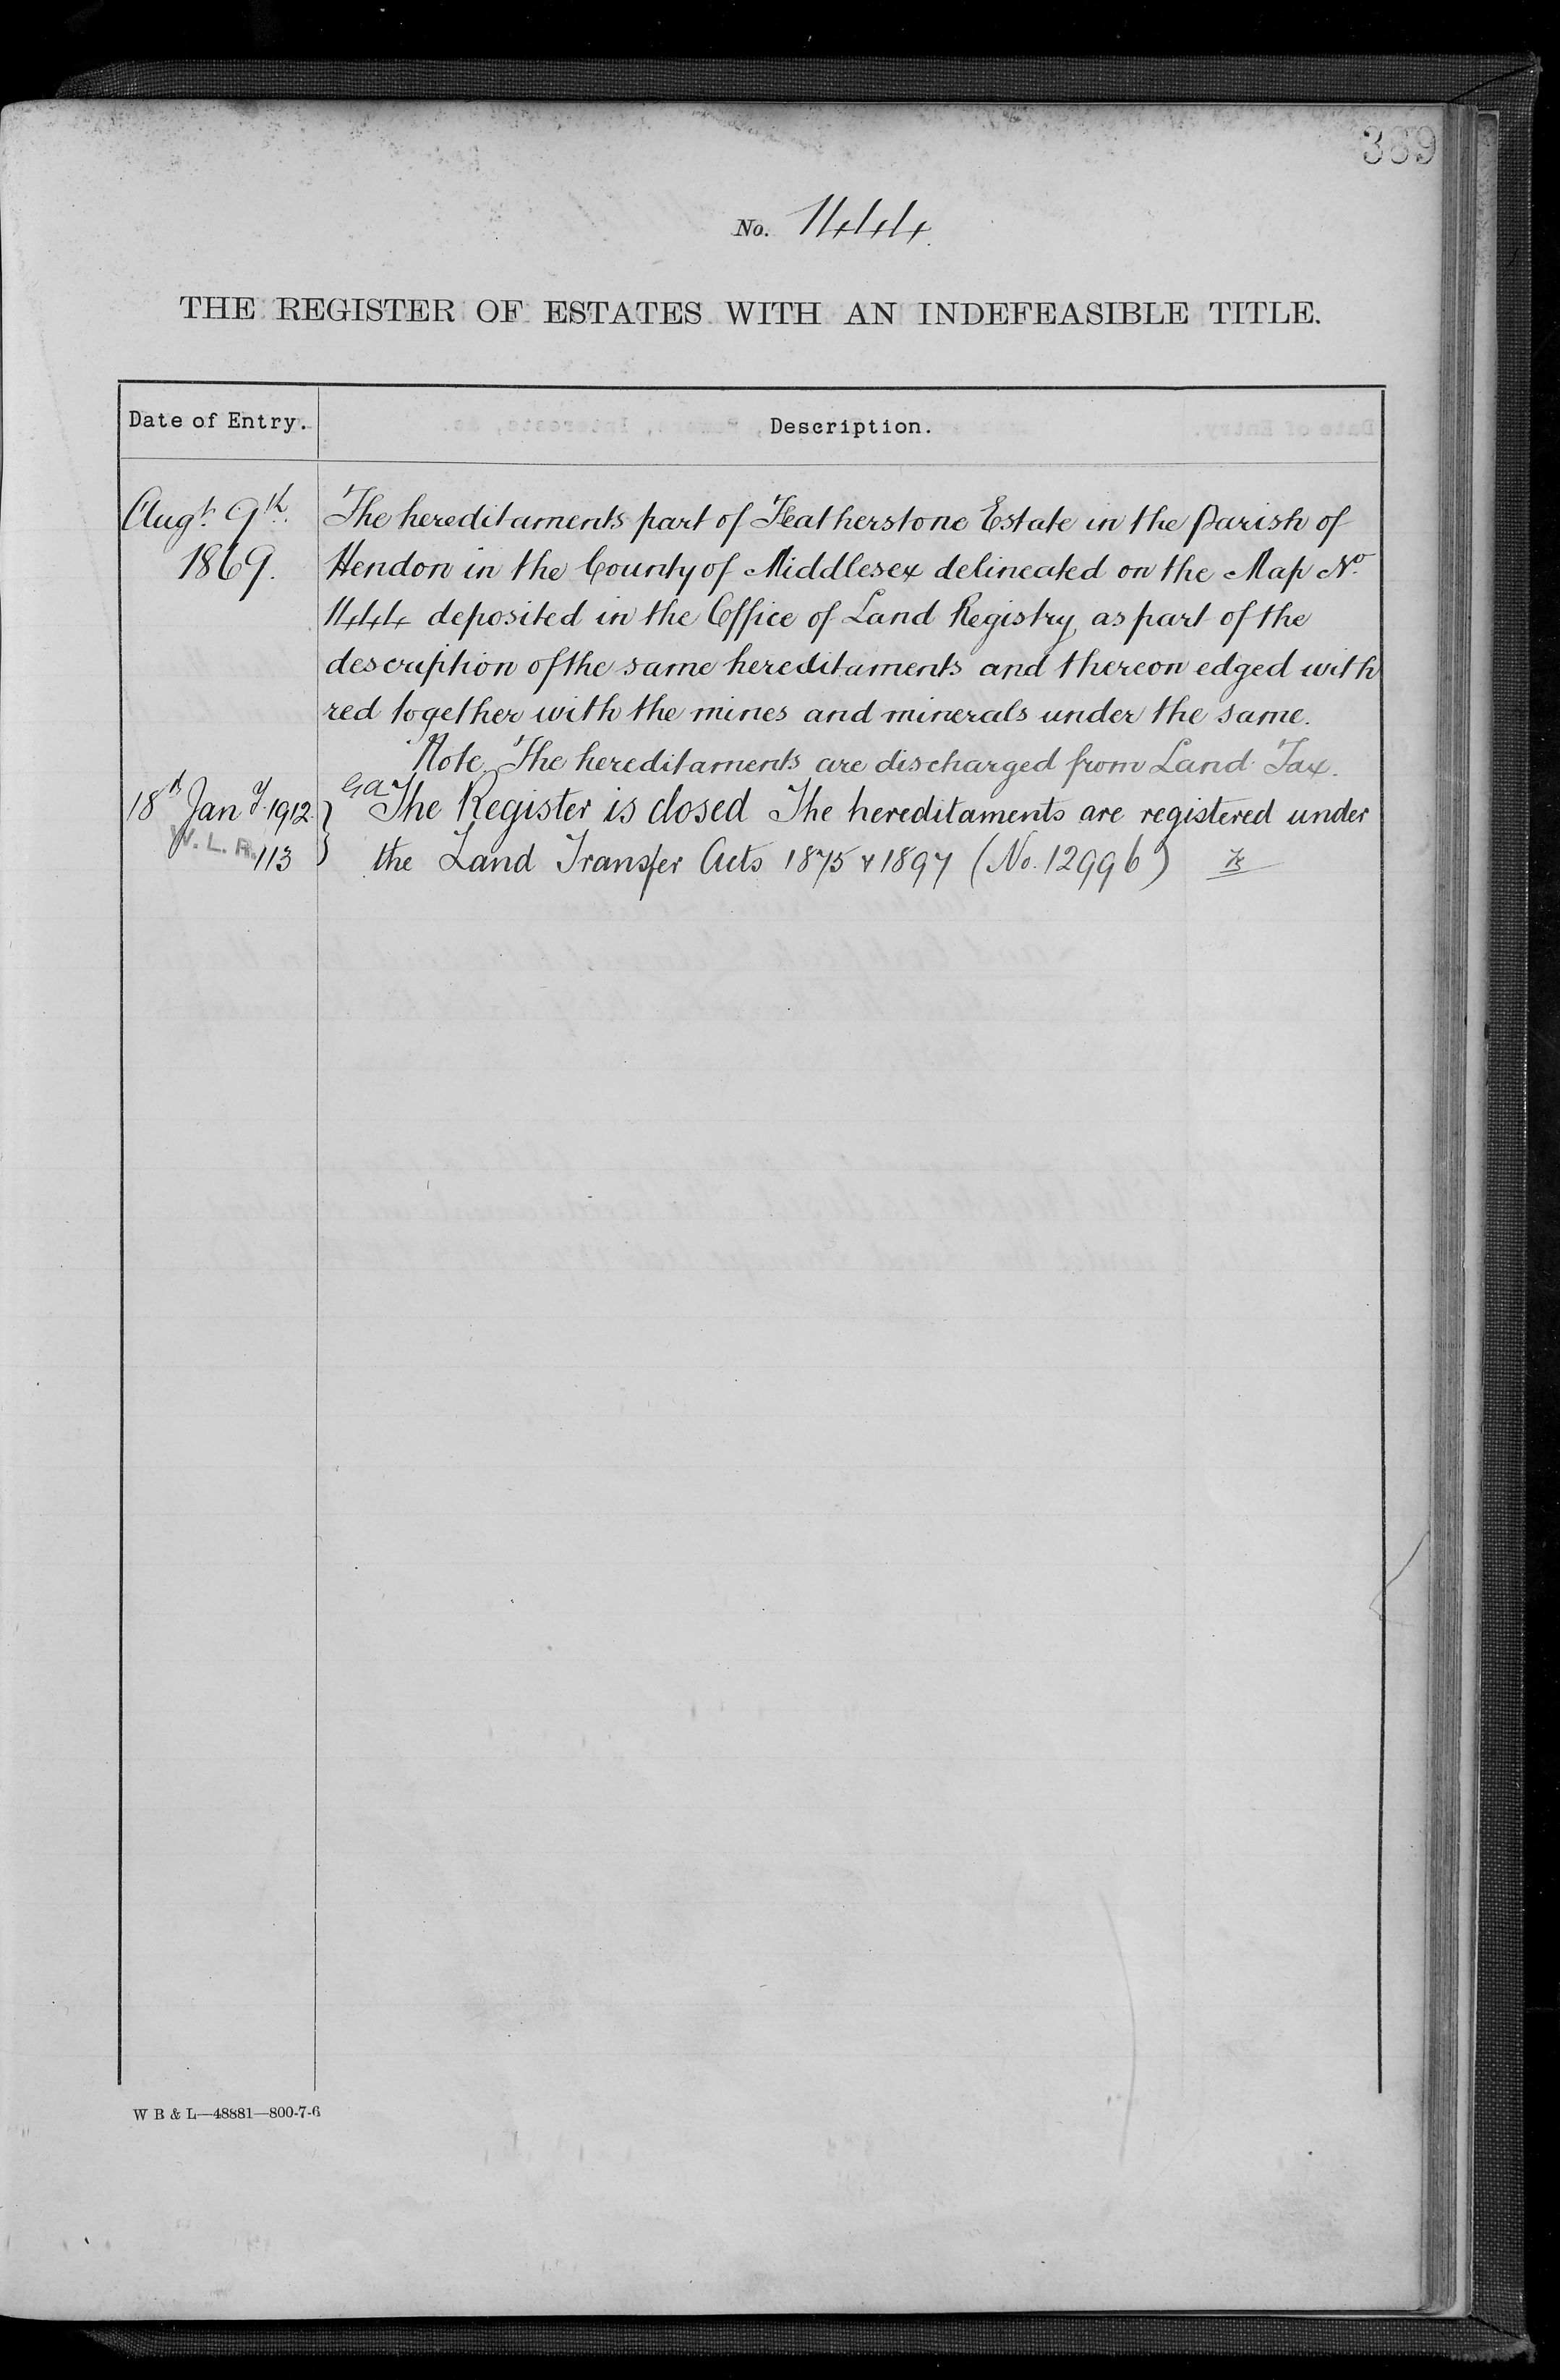 389
No. 1444.
THE REGISTER OF ESTATES WITH AN INDEFEASIBLE TITLE.
Date of Entry. Description.
Augt. 9th. The hereditaments part of Featherstone Estate in the Parish of
1869. Hendon in the County of Middlesex delineated on the Map No.
1444 deposited in the Office of Land Registry, as part of the
description of the same hereditaments and thereon edged with
red together with the mines and minerals under the same.
Note. The hereditaments are discharged from Land Tax.
G.a.
18th Jany. 1912. The Register is closed The hereditaments are registered under
W. L. R. 113 the Land Transfer Acts 1875 & 1897 (No. 12996)
W B & L—48881—800-7-6